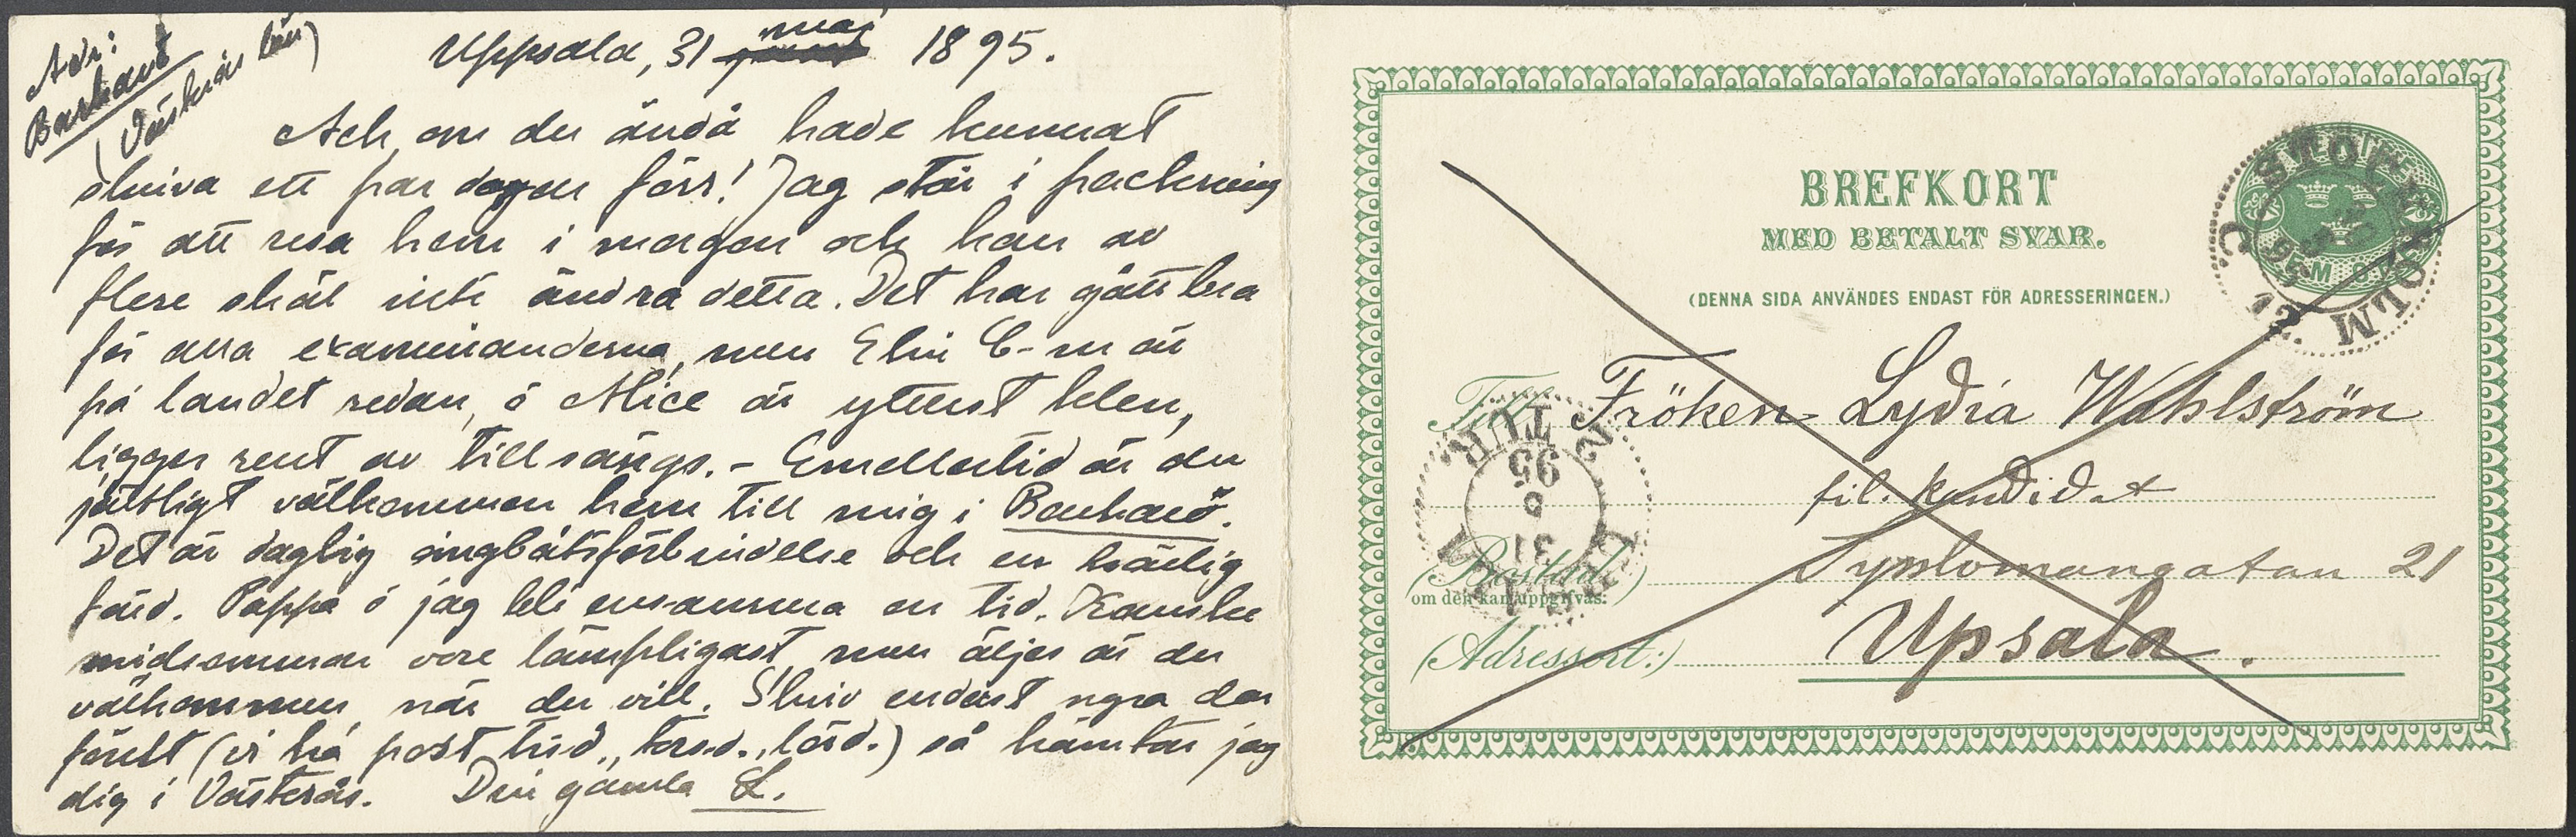 Adr:
Barkarö
(Västerås län)
Uppsala, 31 maj 1895.
Ack, om du ändå hade kunnat
skriva ett par dagar förr! Jag står i packning
för att resa hem i morgon och kan av
flere skäl inte ändra detta. Det har gått bra
för alla examinanderna, men Elin C-m är
på landet redan, ó Alice är ytterst klen,
ligger rent av till sängs. - Emellertid är du
jättligt välkommen hem till mig i Barkarö.
Det är daglig ångbåtsförbindelse och en härlig
färd. Pappa ó jag bli ensamma en tid. Kanske
midsommar vore lämpligast, men äljes är du
välkommen när du vill. Skriv endast ngra dar
förut (vi há post tisd., torsd., lörd.) så hämtar jag
dig i Västerås. Din gamla L.
BREFKORT
MED BETALT SVAR.
(DENNA SIDA ANVÄNDES ENDAST FÖR ADRESSERINGEN.)
STOCKHOLM
Till Fröken Lydia Wahlström
fil. kandidat
(Bostad:) Sysslomangatan 21
om den kan uppgifvas.
(Adressort:) Upsala.
2 TUR
95
5
31
UPSALA